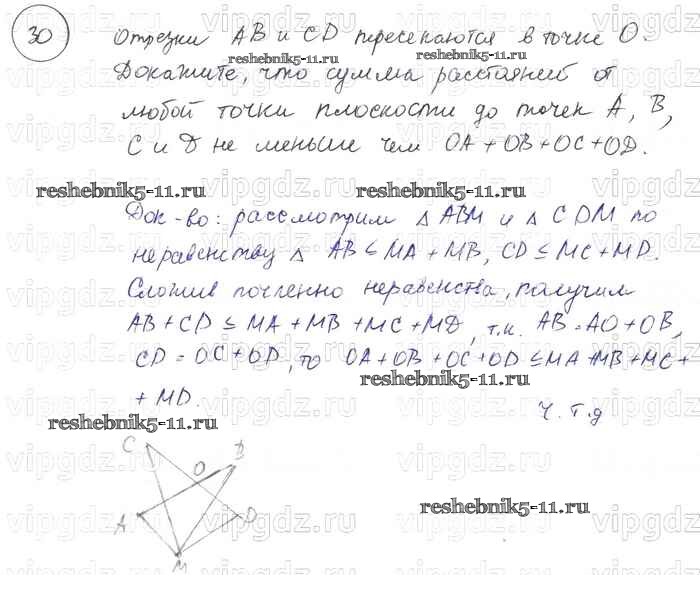 30
Отрезки AB и CD пересекаются в точке O.
reshebnik5-11.ru reshebnik5-11.ru
Докажите, что сумма расстояний от
любой точки плоскости до точек A, B,
C и D не меньше чем OA + OB + OC + OD.
reshebnik5-11.ru reshebnik5-11.ru
Док-во: рассмотрим △ ABM и △ CDM по
неравенству △ AB ≤ MA + MB, CD ≤ MC + MD.
Сложив почленно неравенства, получим
AB + CD ≤ MA + MB + MC + MD, т.к. AB = AO + OB,
CD = OC + OD, то OA + OB + OC + OD ≤ MA + MB + MC +
reshebnik5-11.ru
+ MD.
Ч.т.д
reshebnik5-11.ru
C
O
B
reshebnik5-11.ru
A
D
M
vipgdz.ru